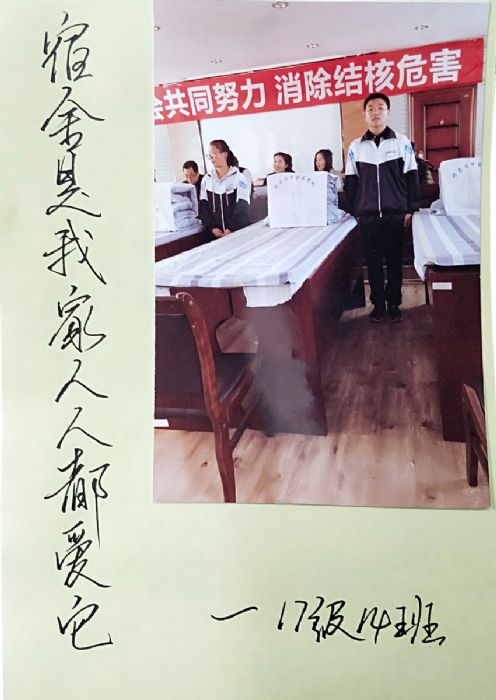 宿舍是我家人人都爱它
会共同努力 消除结核危害
一17级14班